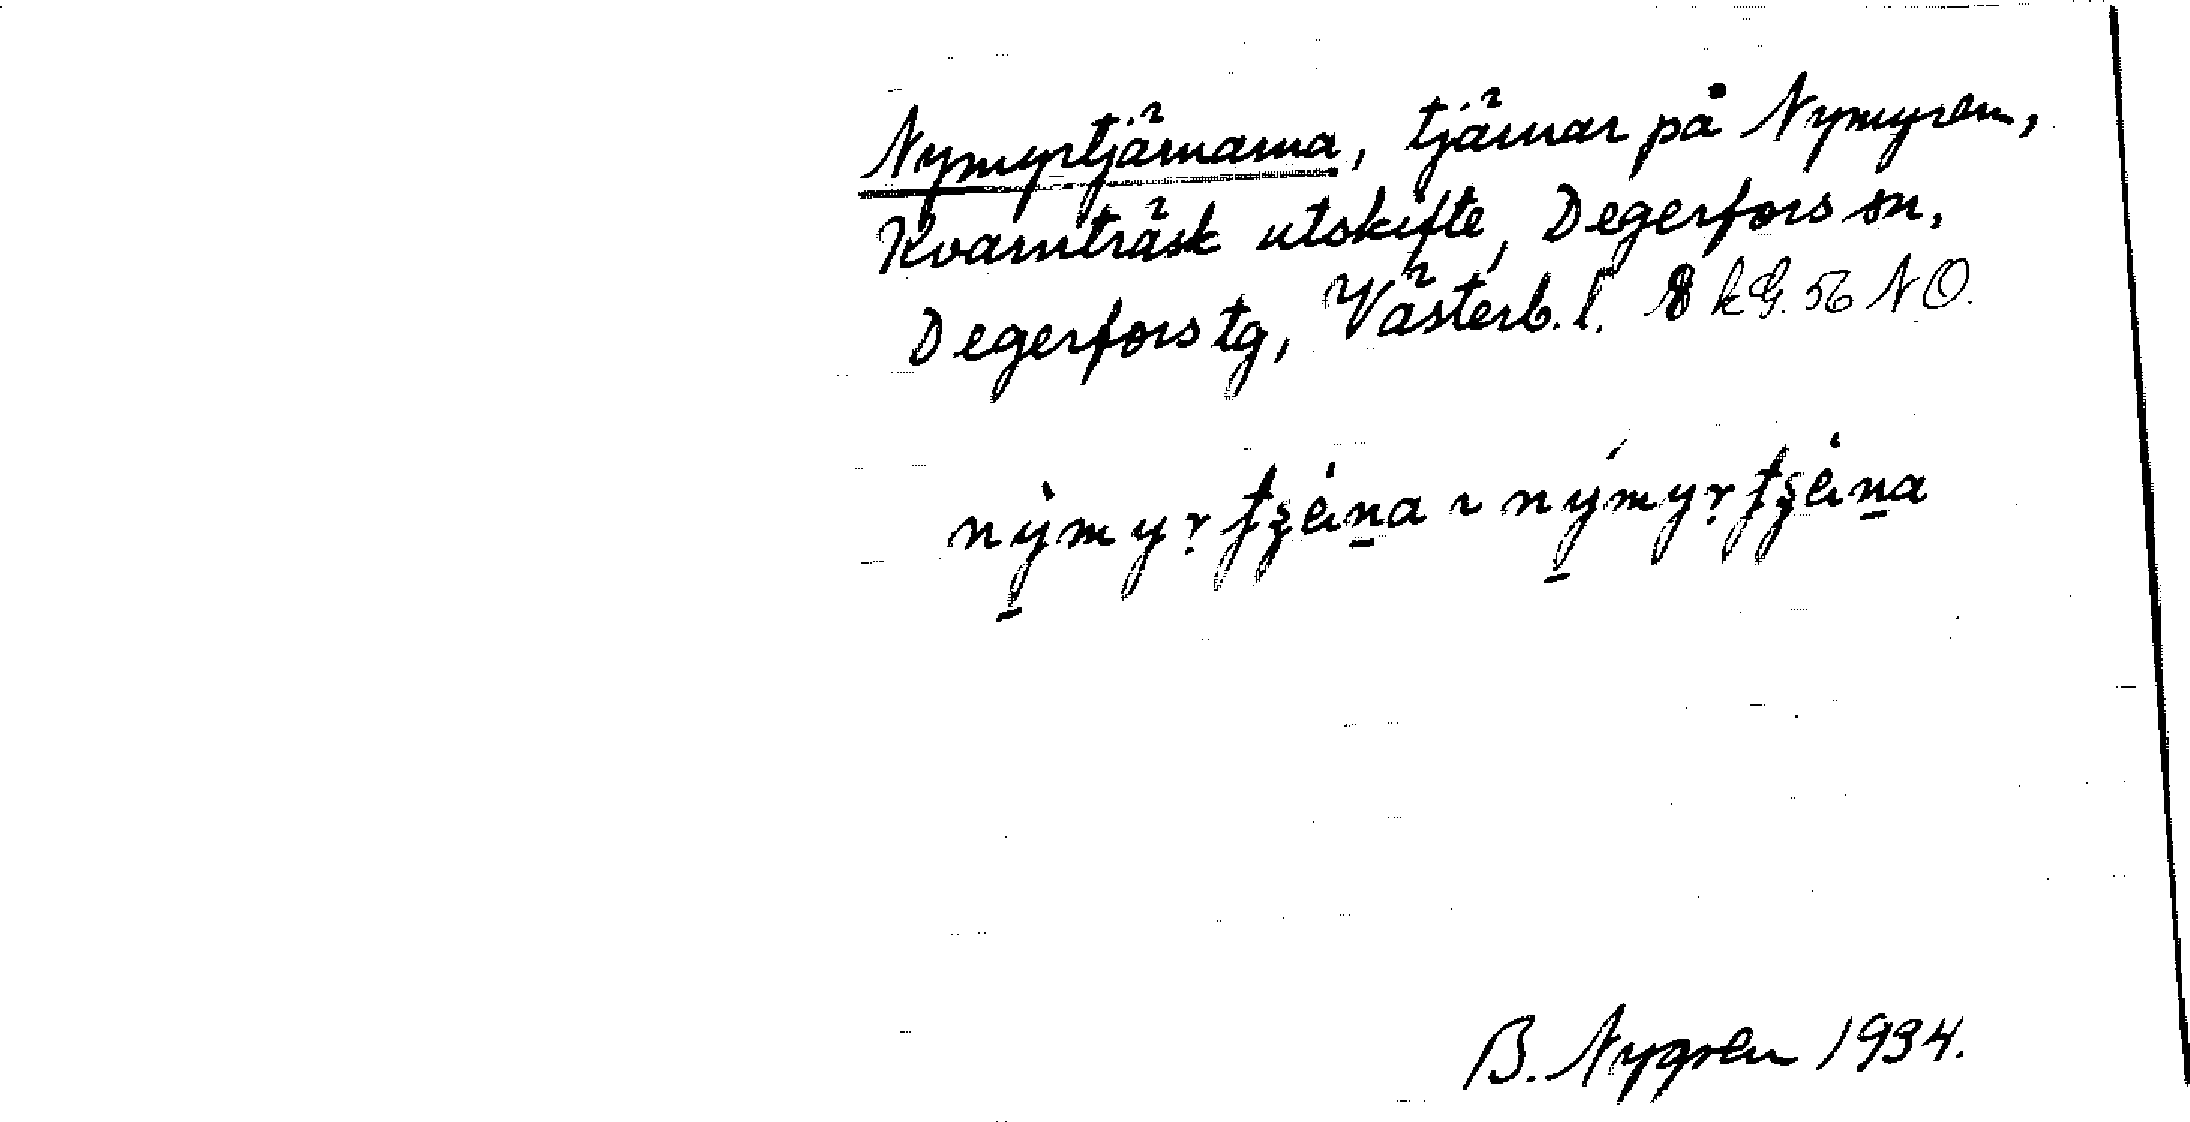 Nymyrtjärnarna, tjärnar på Nymyren,
Kvarnträsk utskifte, Degerfors sn,
Degerfors tg, Västerb. l. 8 kG. 56 NO.
B. Nygren 1934.